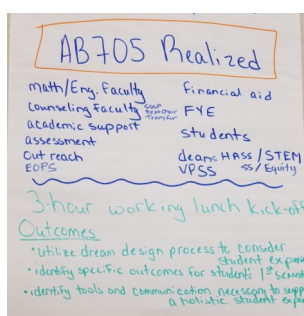 AB705 Realized
math/Eng. Faculty
counseling Faculty
Dept Chair
Transfer
academic support
assessment
Out reach
EOPS
financial aid
FYE
students
deans HASS / STEM
VPSS SS/Equity
3-hour working lunch kick-off
Outcomes
• utilize dream design process to consider
student exper
• identify specific outcomes for students 1st semest
• identify tools and communication necessary to supp
a holistic student expe